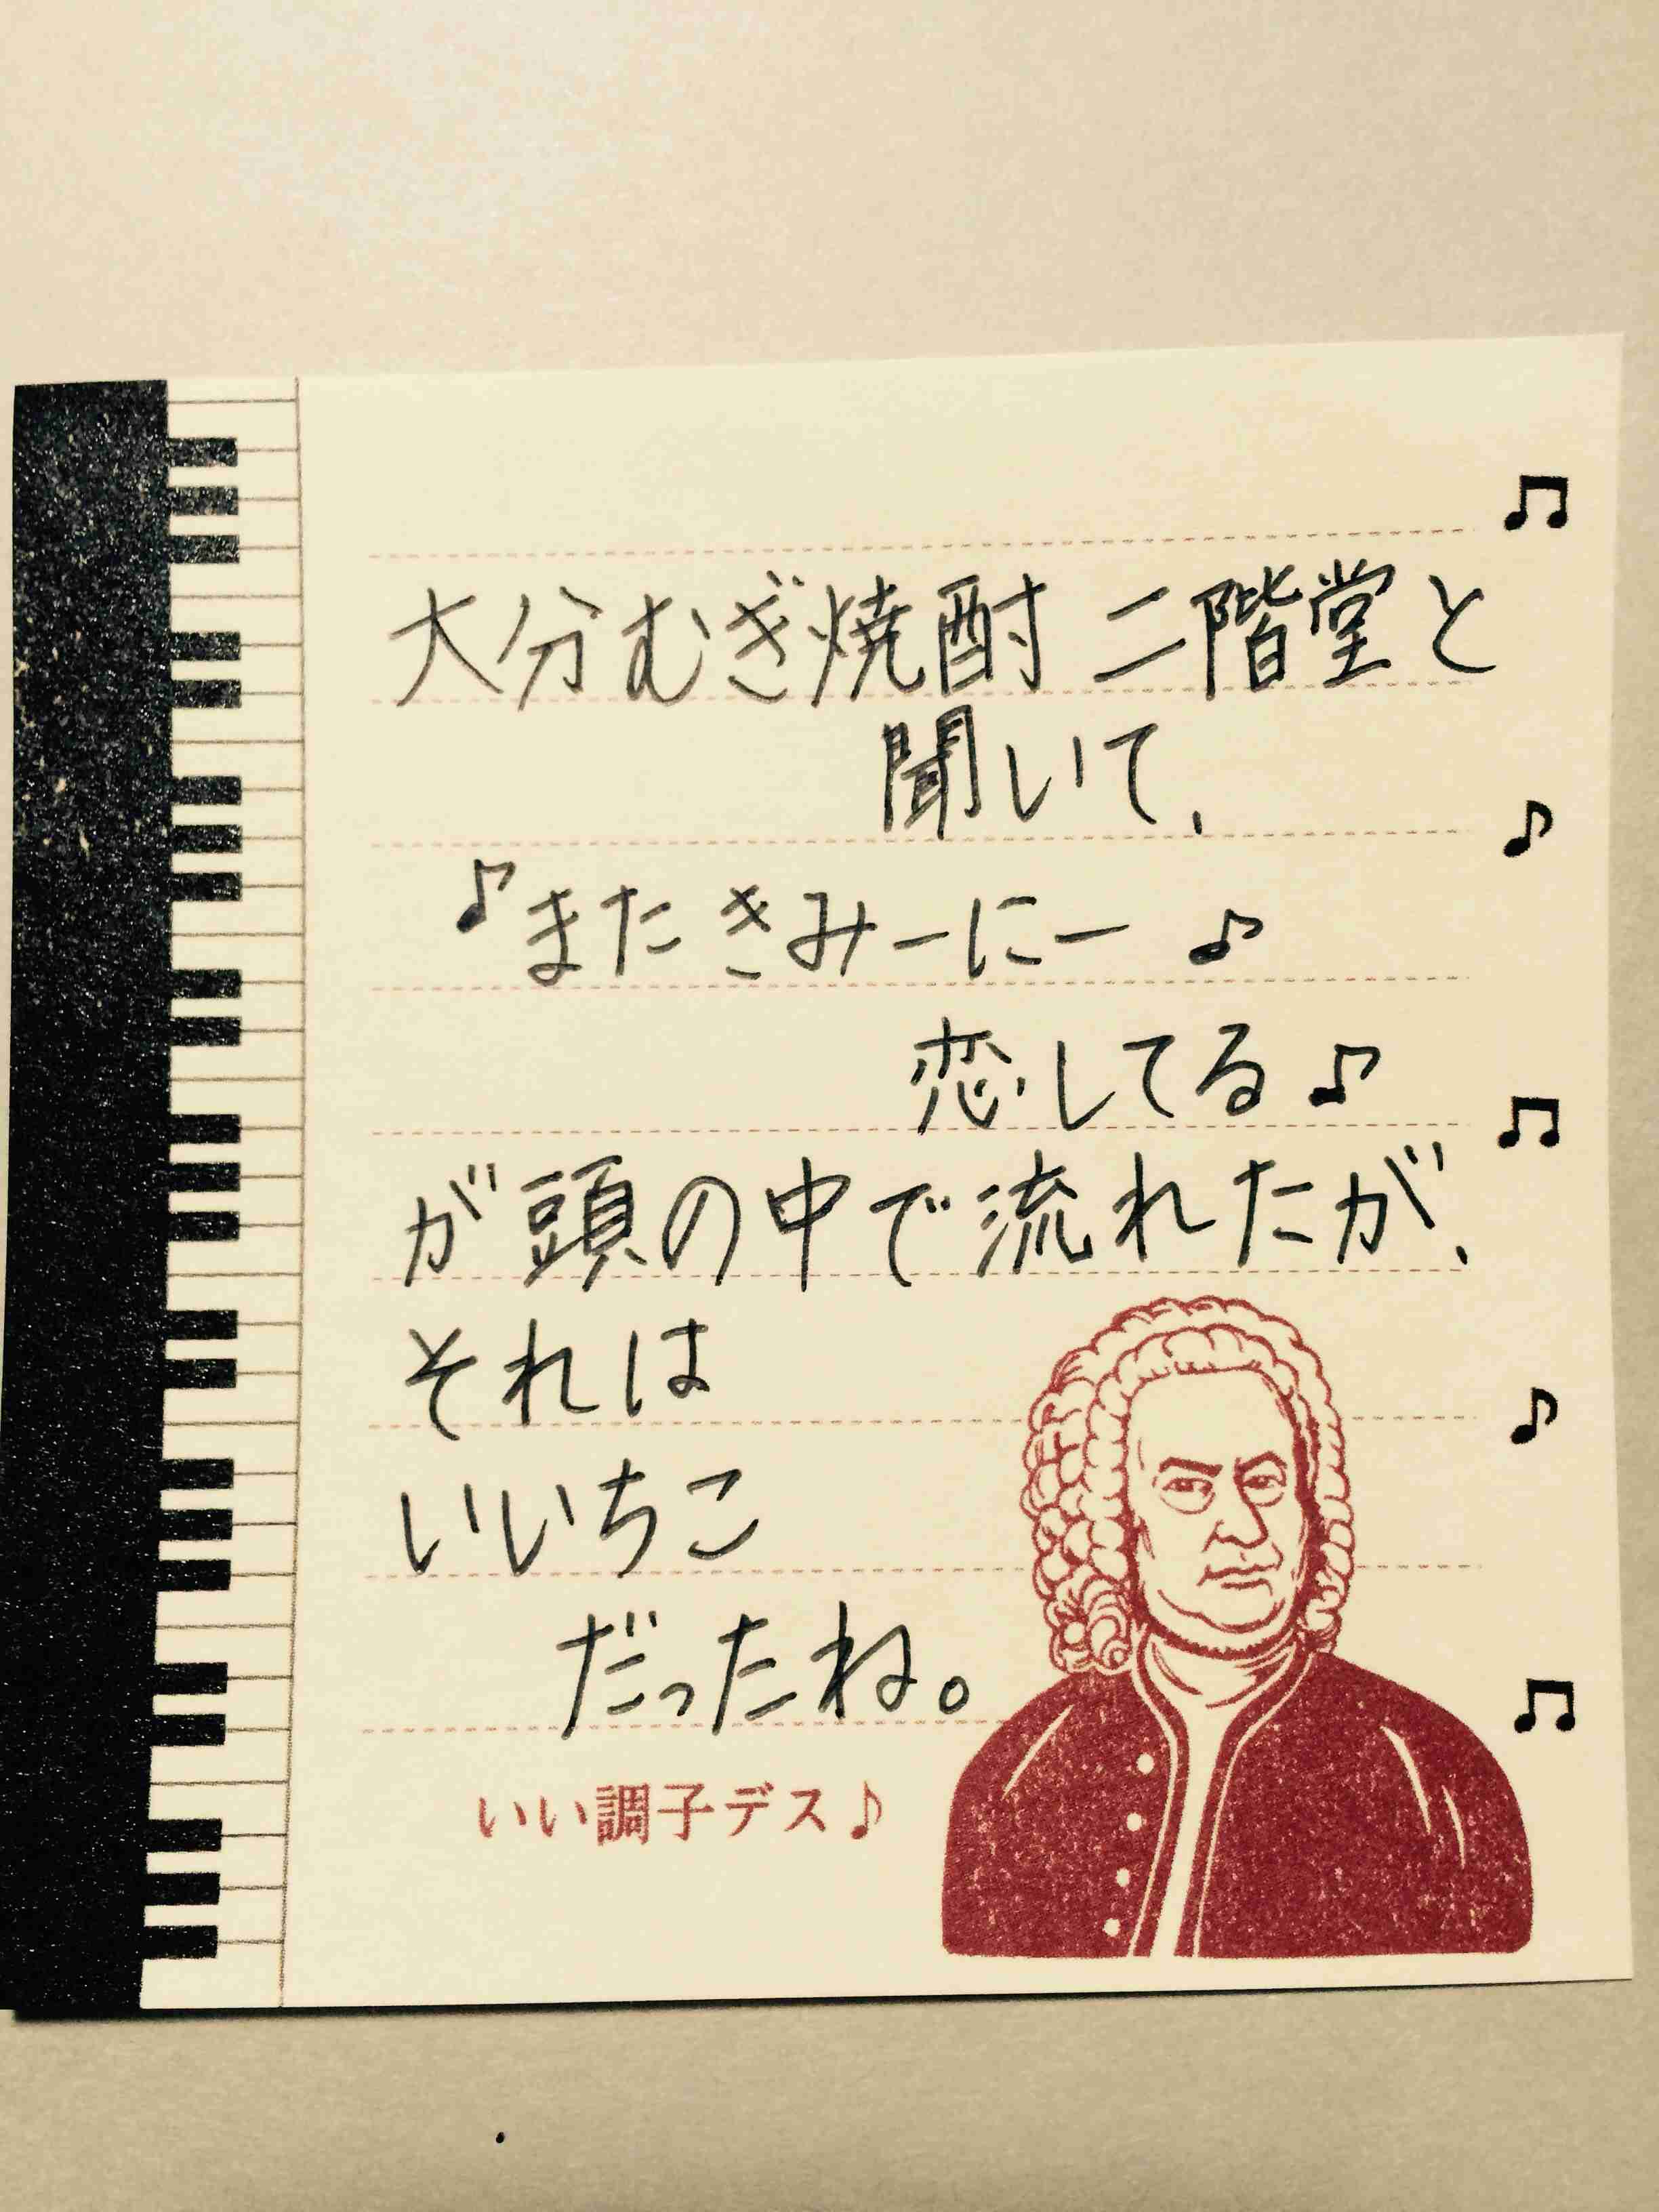 大分むぎ焼酎 二階堂と
聞いて、
♪また きみーにー ♪
恋してる♪
が頭の中で流れたが、
それは
いいちこ
だったね。
いい調子デス♪